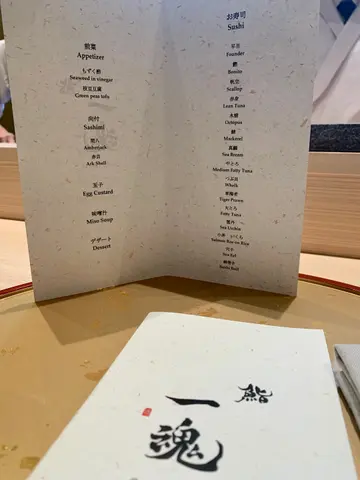 前菜
Appetizer
もずく酢
Seaweed in vinegar
枝豆豆腐
Green peas tofu
向付
Sashimi
間八
Amberjack
赤貝
Ark Shell
玉子
Egg Custard
味噌汁
Miso Soup
デザート
Dessert
お寿司
Sushi
平目
Founder
鰹
Bonito
帆立
Scallop
赤身
Lean Tuna
水蛸
Octopus
鯖
Mackerel
真鯛
Sea Bream
中とろ
Medium Fatty Tuna
つぶ貝
Whelk
車海老
Tiger Prawn
大とろ
Fatty Tuna
雲丹
Sea Urchin
小丼 いくら
Salmon Roe on Rice
穴子
Sea Eel
鮨
一
魂